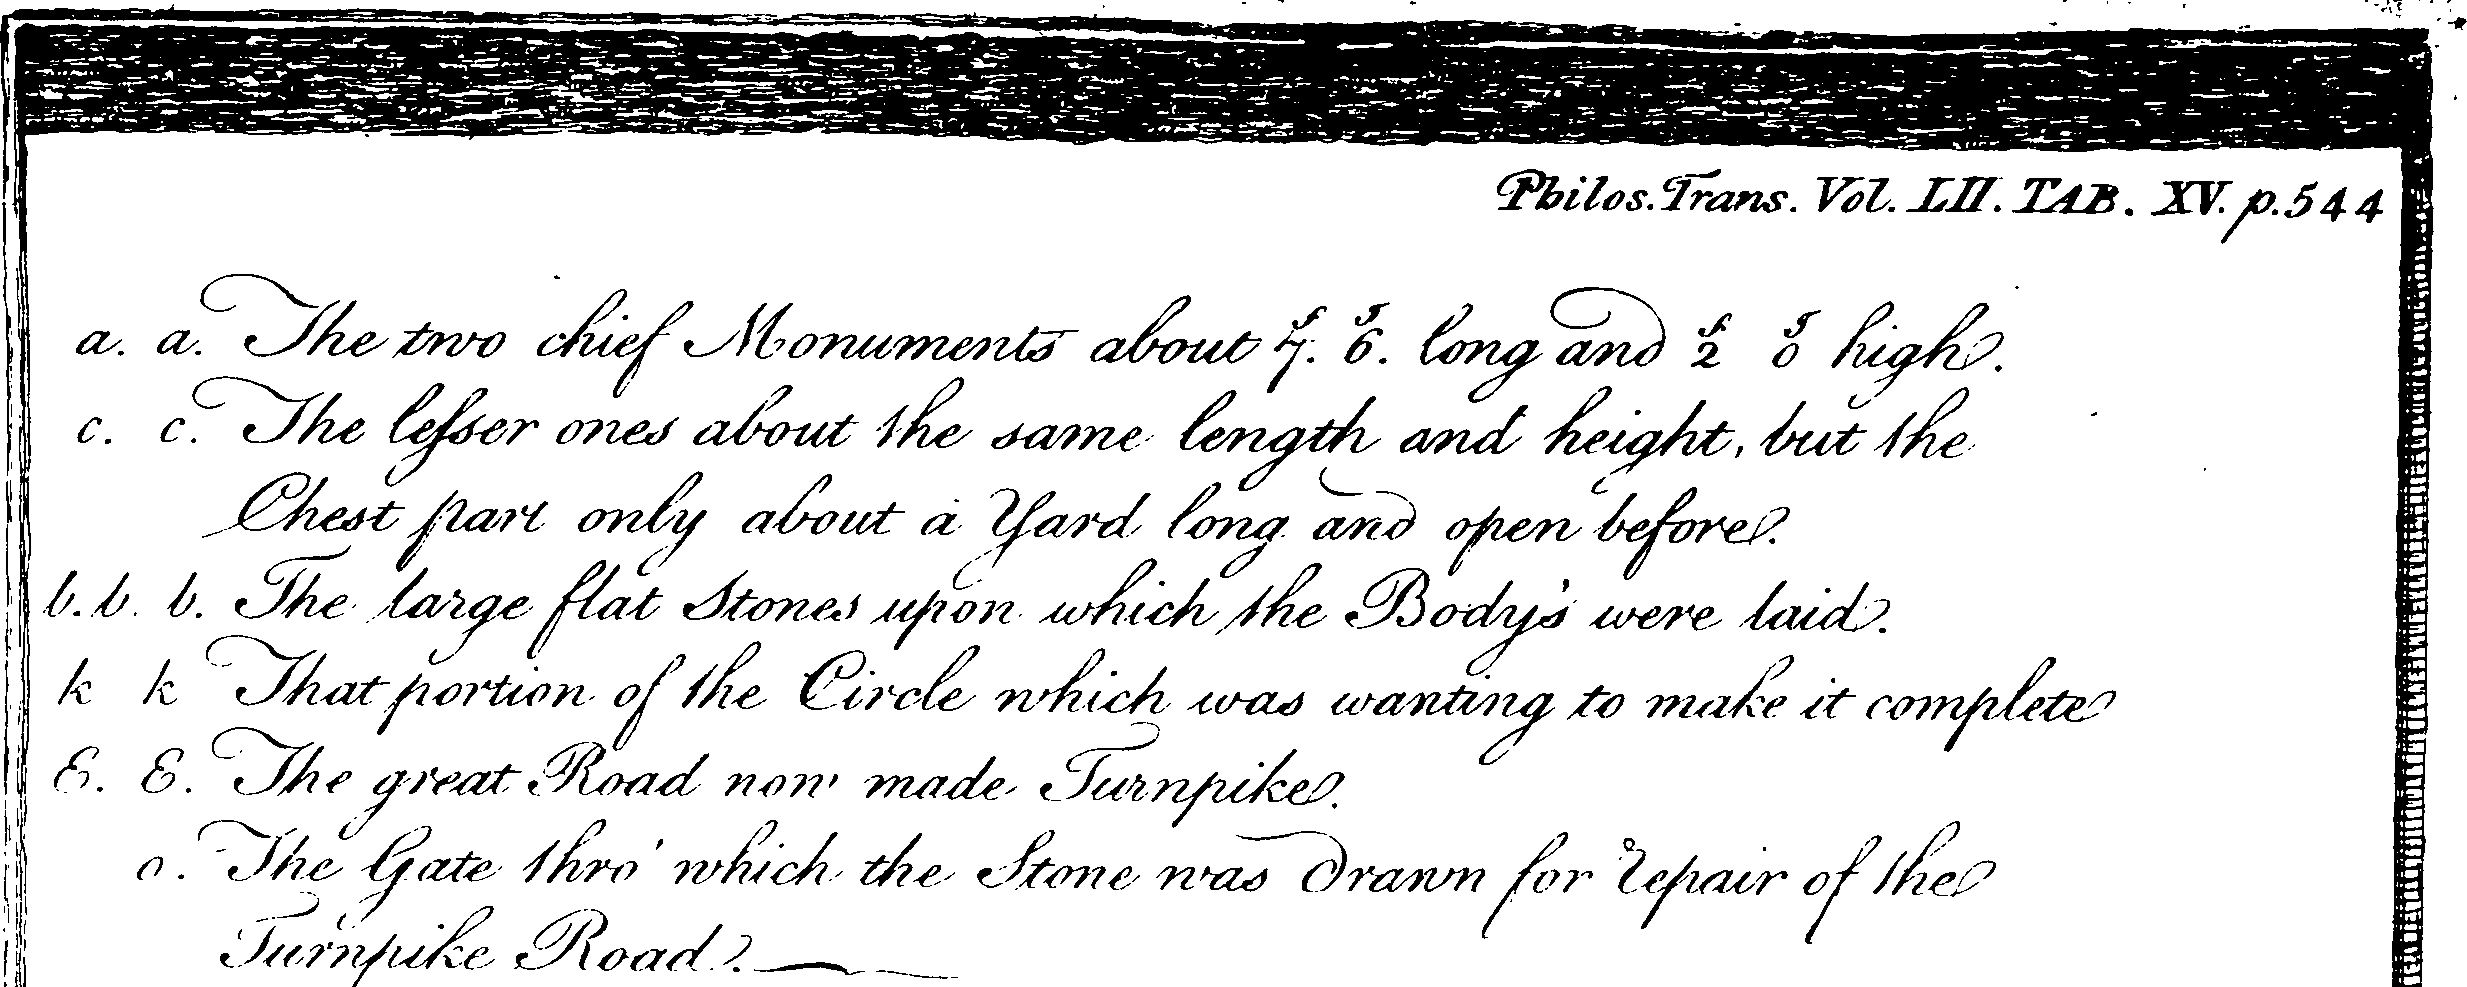 Philos. Trans. Vol. LII. TAB. XV. p. 544
a. a. The two chief Monuments about 7. 6. long and 2 0 high.
c. c. The leſser ones about the same length and height, but the
Chest part only about a Yard long and open before.
b. b. b. The large flat Stones upon which the Body's were laid.
k k That portion of the Circle which was wanting to make it complete
E. E. The great Road now made Turnpike.
o. The Gate thro' which the Stone was drawn for repair of the
Turnpike Road.